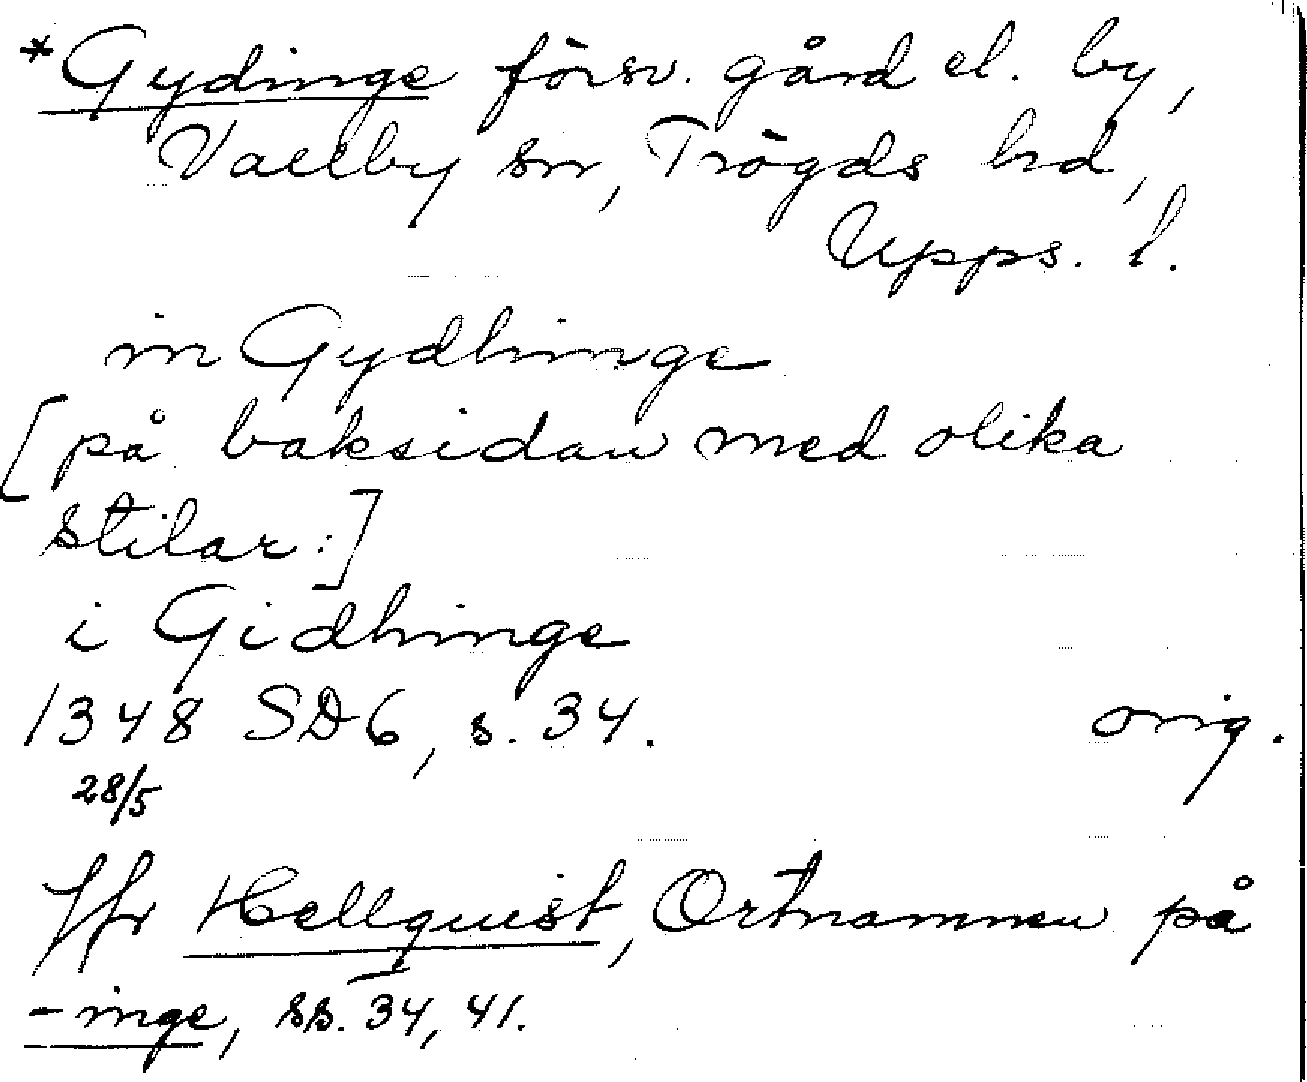 *Gydinge försv. gård el. by,
Vallby sn, Trögds hd,
Upps. l.
in Gydhinge
[på baksidan med olika
stilar:]
i Gidhinge
1348 SD6, s. 34. orig.
28/5
Jfr Hellquist, Ortnamnen på
-inge, ss. 34, 41.